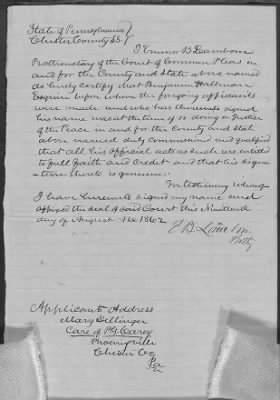 State of Pennsylvania
Chester County SS
I Emmor B Lamborn
Prothonotary of the Court of Common Pleas in
and for the County and State above named
do hereby certify that Benjamin Hallman
Esquire before whom the foregoing affidavits
were made and who has thereunto signed
his name was at the time of so doing a Justice
of the Peace in and for the County and State
above named duly commissioned and qualified
that all his official acts as such are entitled
to full faith and credit and that his signa
ture thereto is genuine
In testimony whereof
I have hereunto signed my name and
affixed the seal of said Court this Nineteenth
day of August AD 1862
E B
Prothy
Applicants Address
Mary Dellinger
Care of P. G. Carey
Phoenixville
Chester Co
Pa